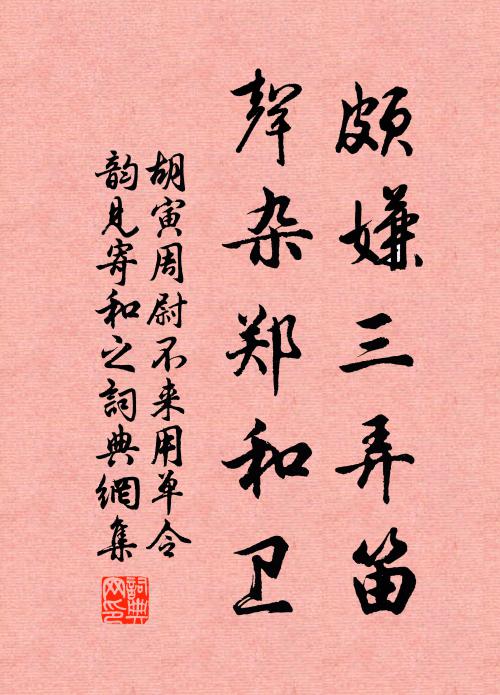 颇嫌三弄笛
声杂郑和卫
胡寅周尉不来用单令
韵见寄和之词典網集
詞典網印